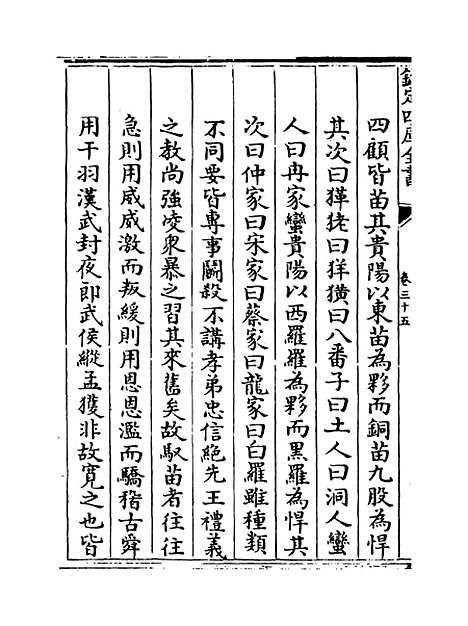 欽定四庫全書
卷三十五
四顧皆苗其貴陽以東苗為夥而銅苗九股為悍
其次曰𤝞狫曰𤞑獚曰八番子曰土人曰洞人蠻
人曰冉家蠻貴陽以西羅羅為夥而黑羅為悍其
次曰仲家曰宋家曰蔡家曰龍家曰白羅雖種類
不同要皆專事鬭殺不講孝弟忠信絶先王禮義
之教尚強凌衆暴之習其來舊矣故馭苗者往往
急則用威威激而叛緩則用恩恩濫而驕稽古舜
用干羽漢武封夜郎武侯縱孟獲非故寛之也皆